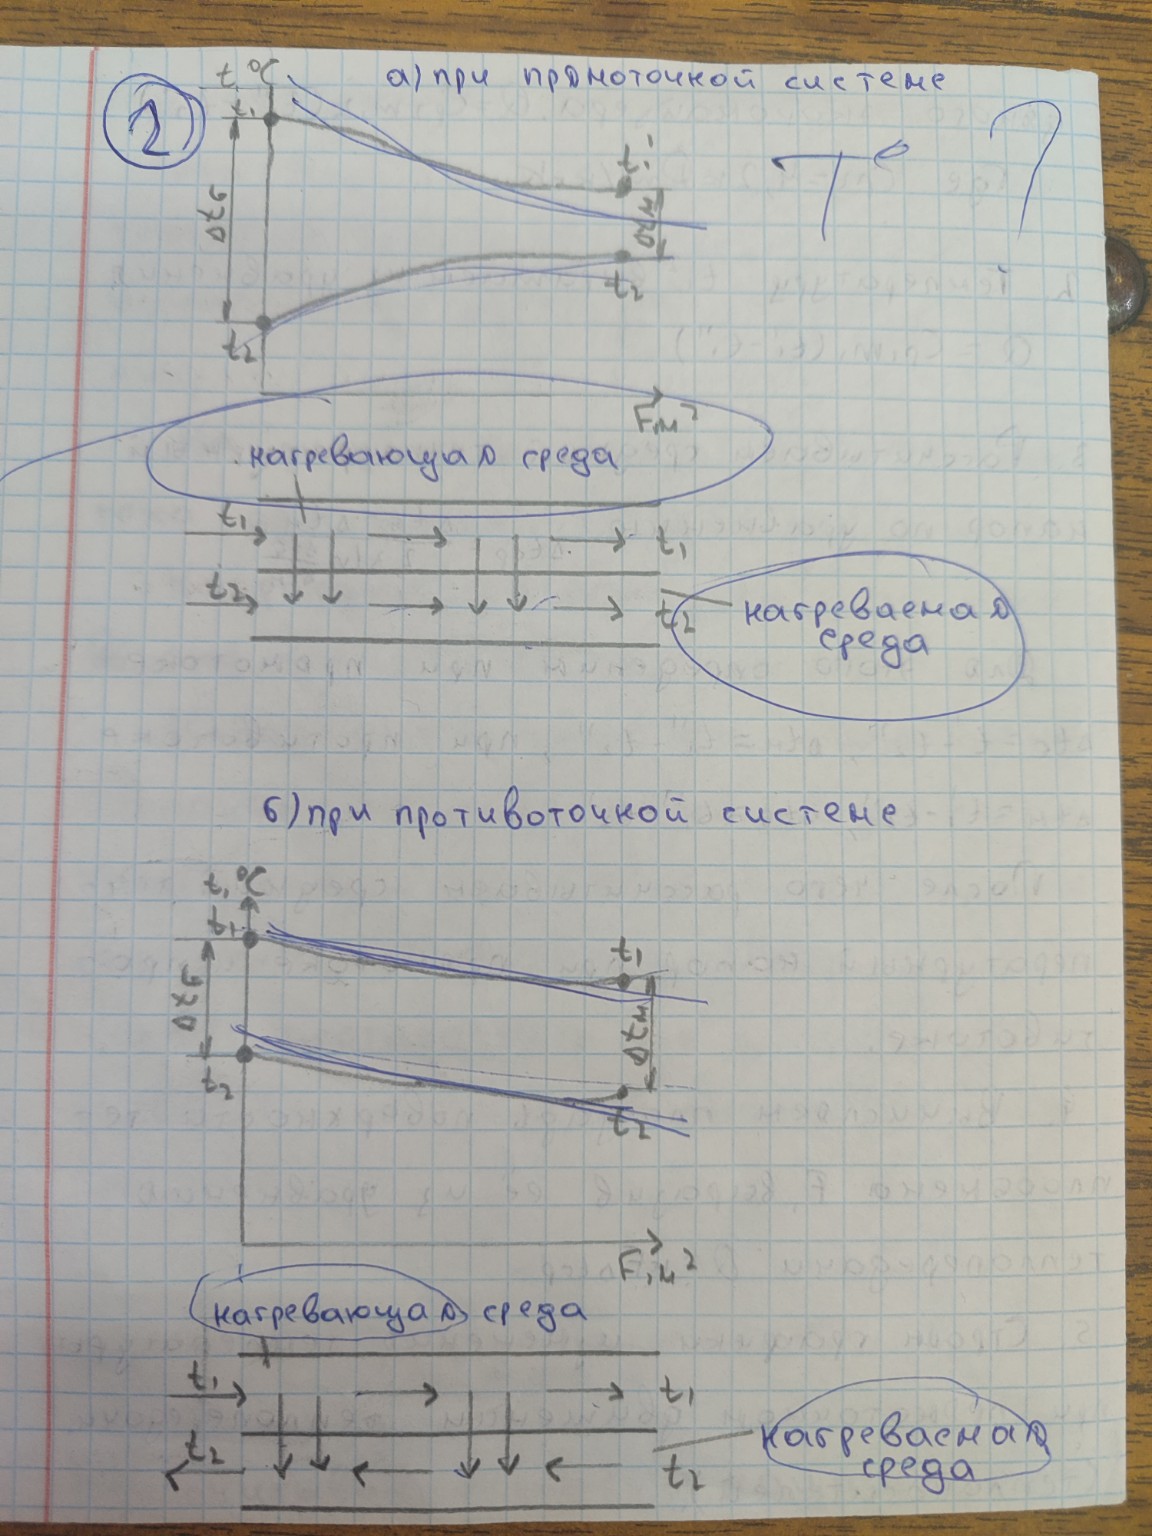 2
t°C
а) при прямоточной системе
t₁
t₁
T° ?
Δtб
Δtм
t₂
t₂
F, м²
нагревающая среда
t₁
t₁
t₂
t₂
нагреваемая
среда
б) при противоточной системе
t, °C
t₁
t₁
Δtб
Δtм
t₂
t₂
F, м²
нагревающая среда
t₁
t₁
t₂
t₂
нагреваемая
среда